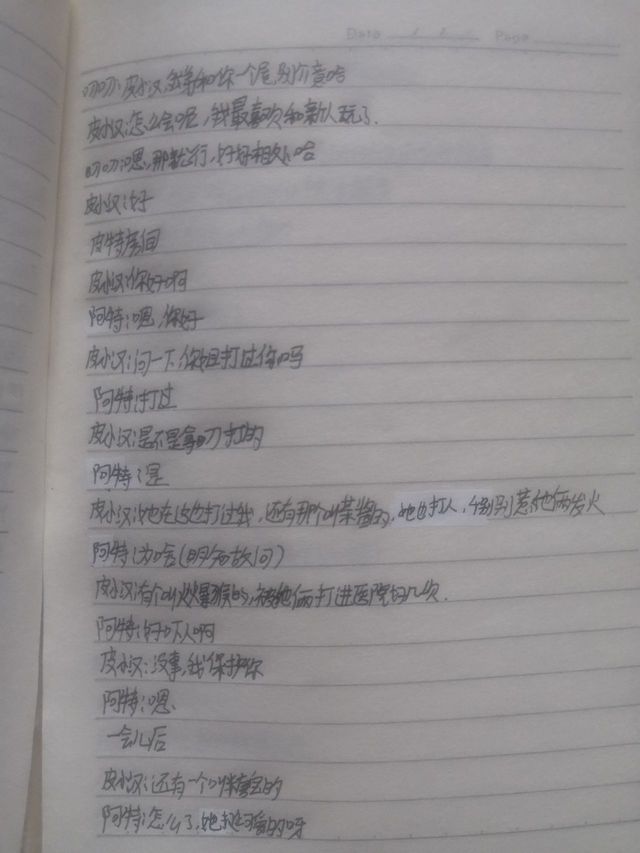 Date / / Page
叨叨:皮小汉,跟你一个屋,别介意哈
皮小汉:怎么会呢,我最喜欢和新人玩了.
叨叨:嗯,那就行,好好相处哈
皮小汉:好
皮特房间
皮小汉:你好啊
阿特:嗯,你好
皮小汉:问一下,你姐打过你吗
阿特:打过
皮小汉:是不是拿刀打的
阿特:是
皮小汉:她在这也打过我,还有那个叫菜酱的,她也打人,特别别惹他俩发火
阿特:为啥(明知故问)
皮小汉:有个叫火爆猴的,被他俩打进医院好几次.
阿特:好吓人啊
皮小汉:没事,我保护你
阿特:嗯、
一会儿后
皮小汉:还有一个叫宝的
阿特:怎么了,她挺可爱的呀